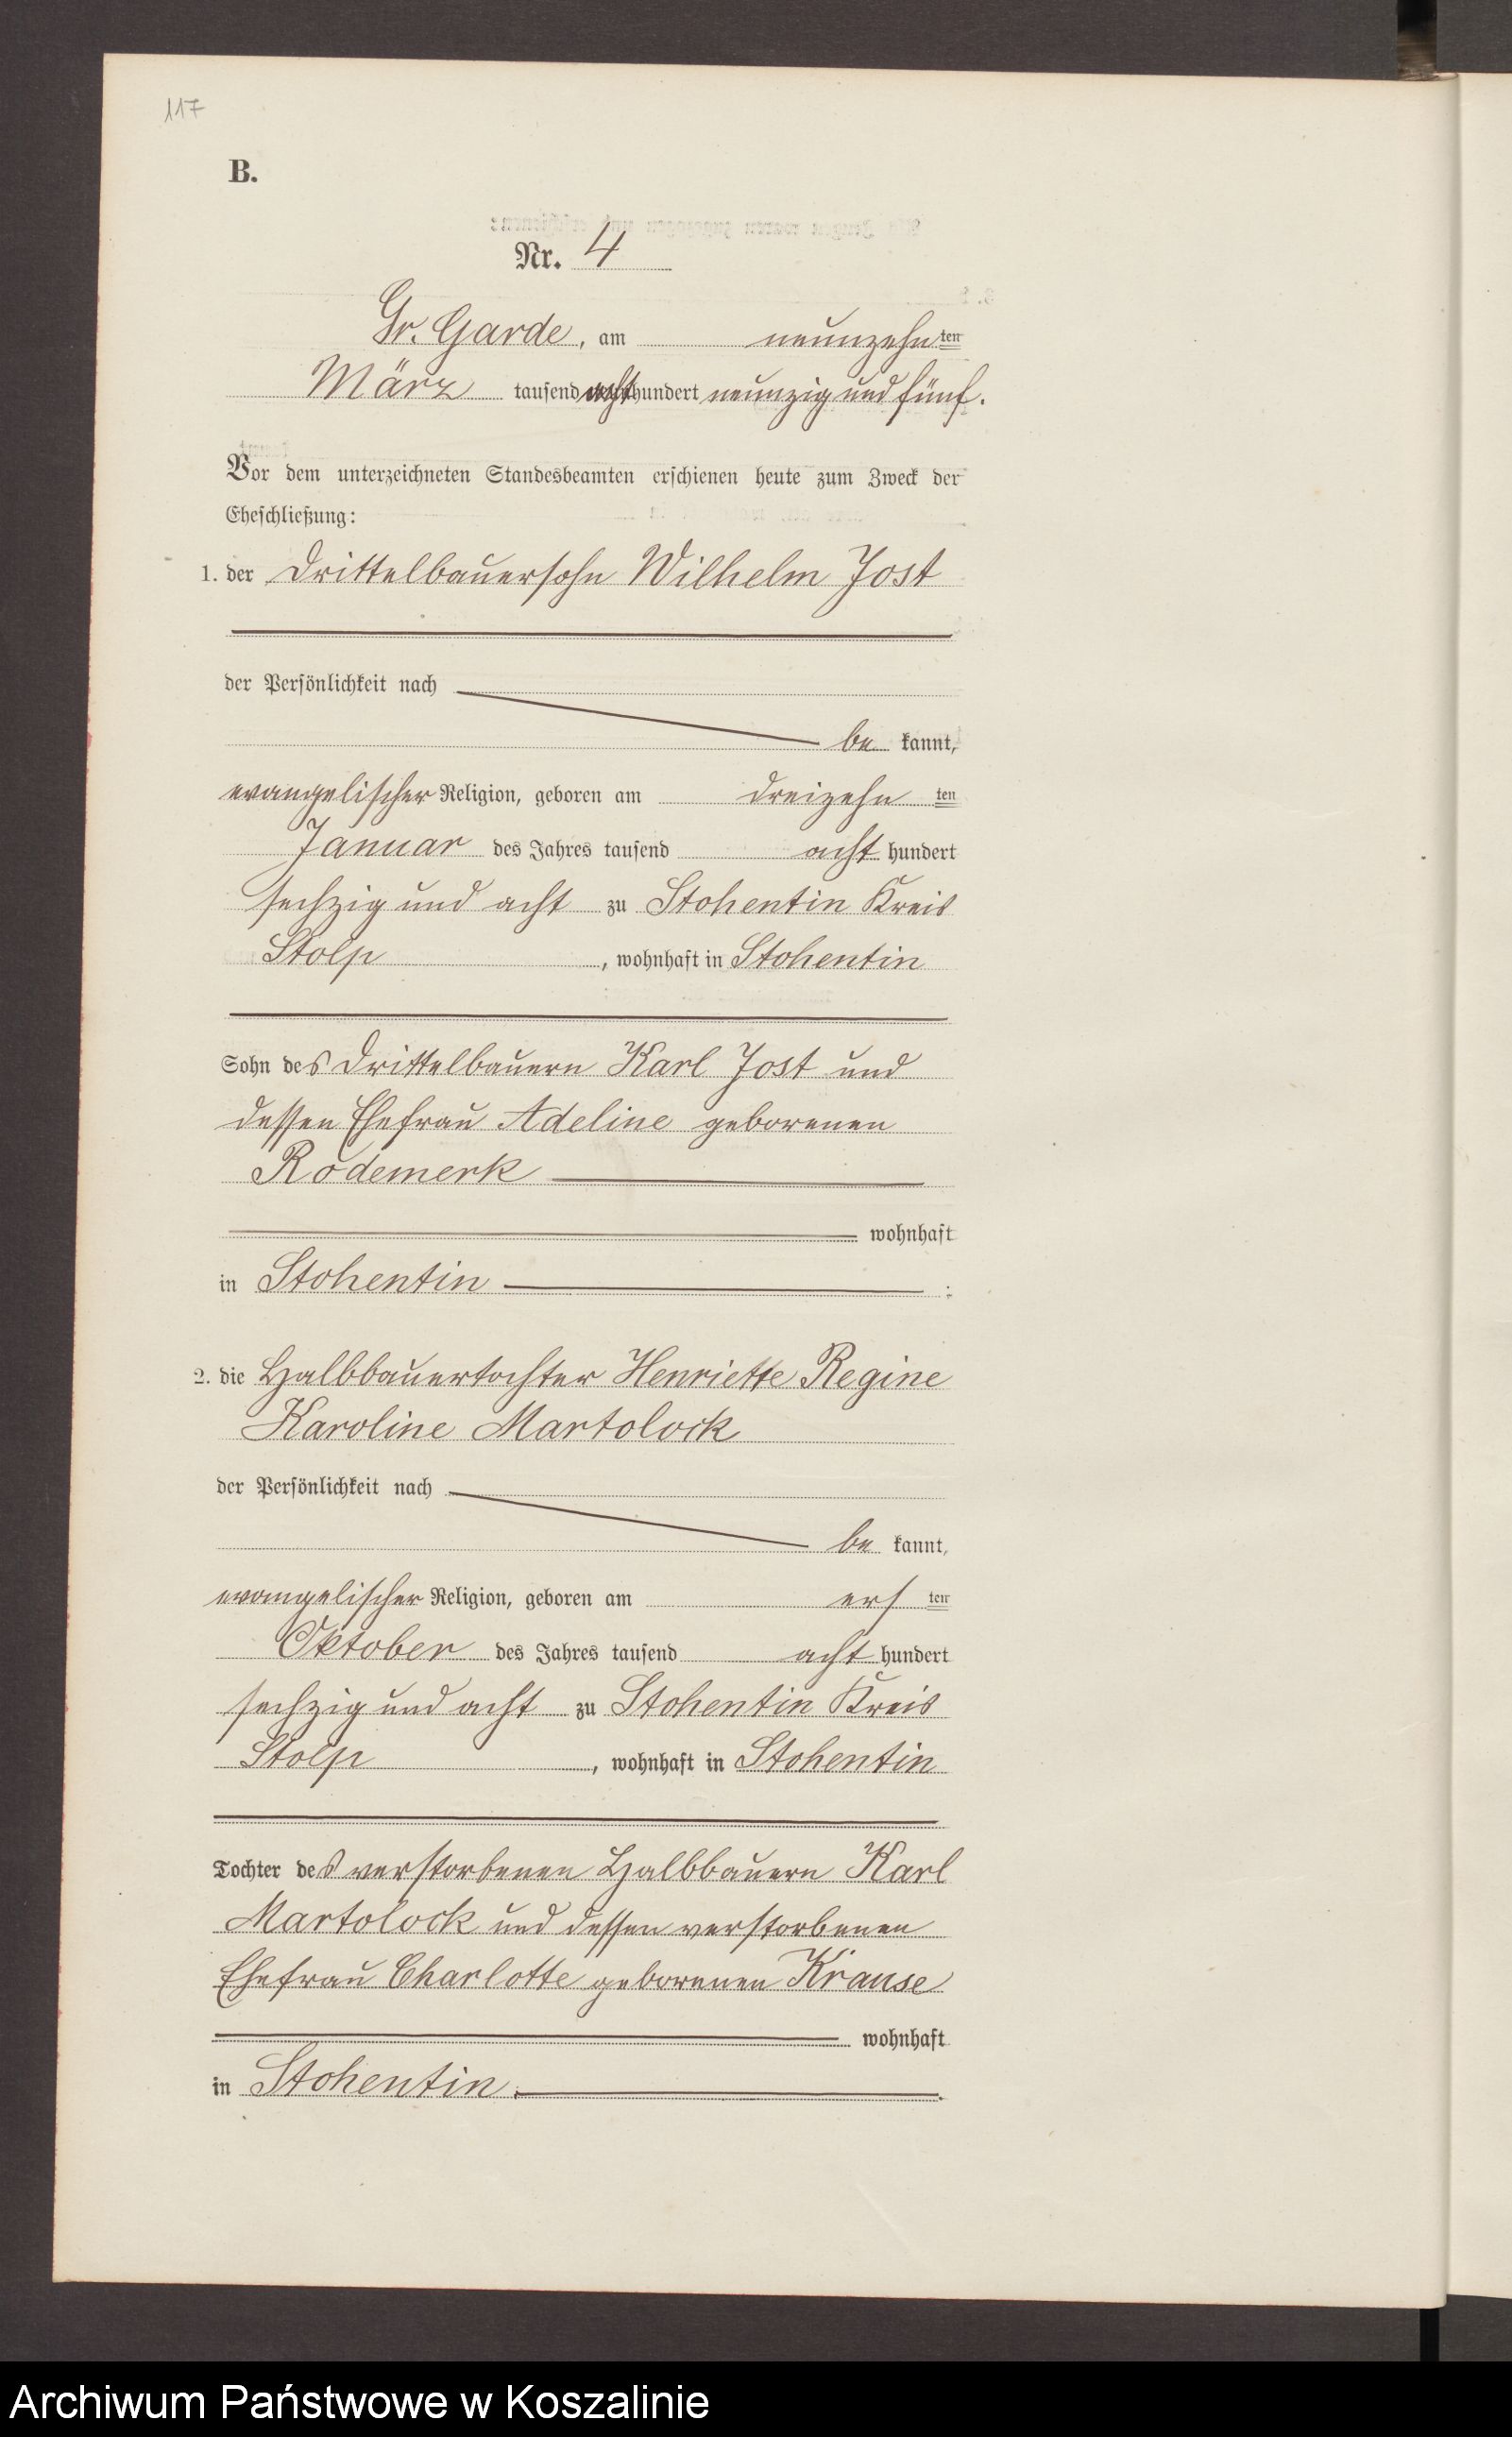 117
B.
Nr. 4
Gr. Garde, am neunzehnten
März tausend achthundert neunzig und fünf.
Vor dem unterzeichneten Standesbeamten erschienen heute zum Zweck der
Eheschließung:
1. der Drittelbauersohn Wilhelm Jost
der Persönlichkeit nach
be kannt,
evangelischer Religion, geboren am dreizehn ten
Januar des Jahres tausend acht hundert
sechzig und acht zu Stohentin Kreis
Stolp, wohnhaft in Stohentin
Sohn des Drittelbauern Karl Jost und
dessen Ehefrau Adeline geborenen
Rodemerk
wohnhaft
in Stohentin ;
2. die Halbbauertochter Henriette Regine
Karoline Martolock
der Persönlichkeit nach
be kannt,
evangelischer Religion, geboren am ers ten
Oktober des Jahres tausend acht hundert
sechzig und acht zu Stohentin Kreis
Stolp, wohnhaft in Stohentin
Tochter des verstorbenen Halbbauern Karl
Martolock und dessen verstorbenen
Ehefrau Charlotte geborenen Krause
wohnhaft
in Stohentin.
Archiwum Państwowe w Koszalinie